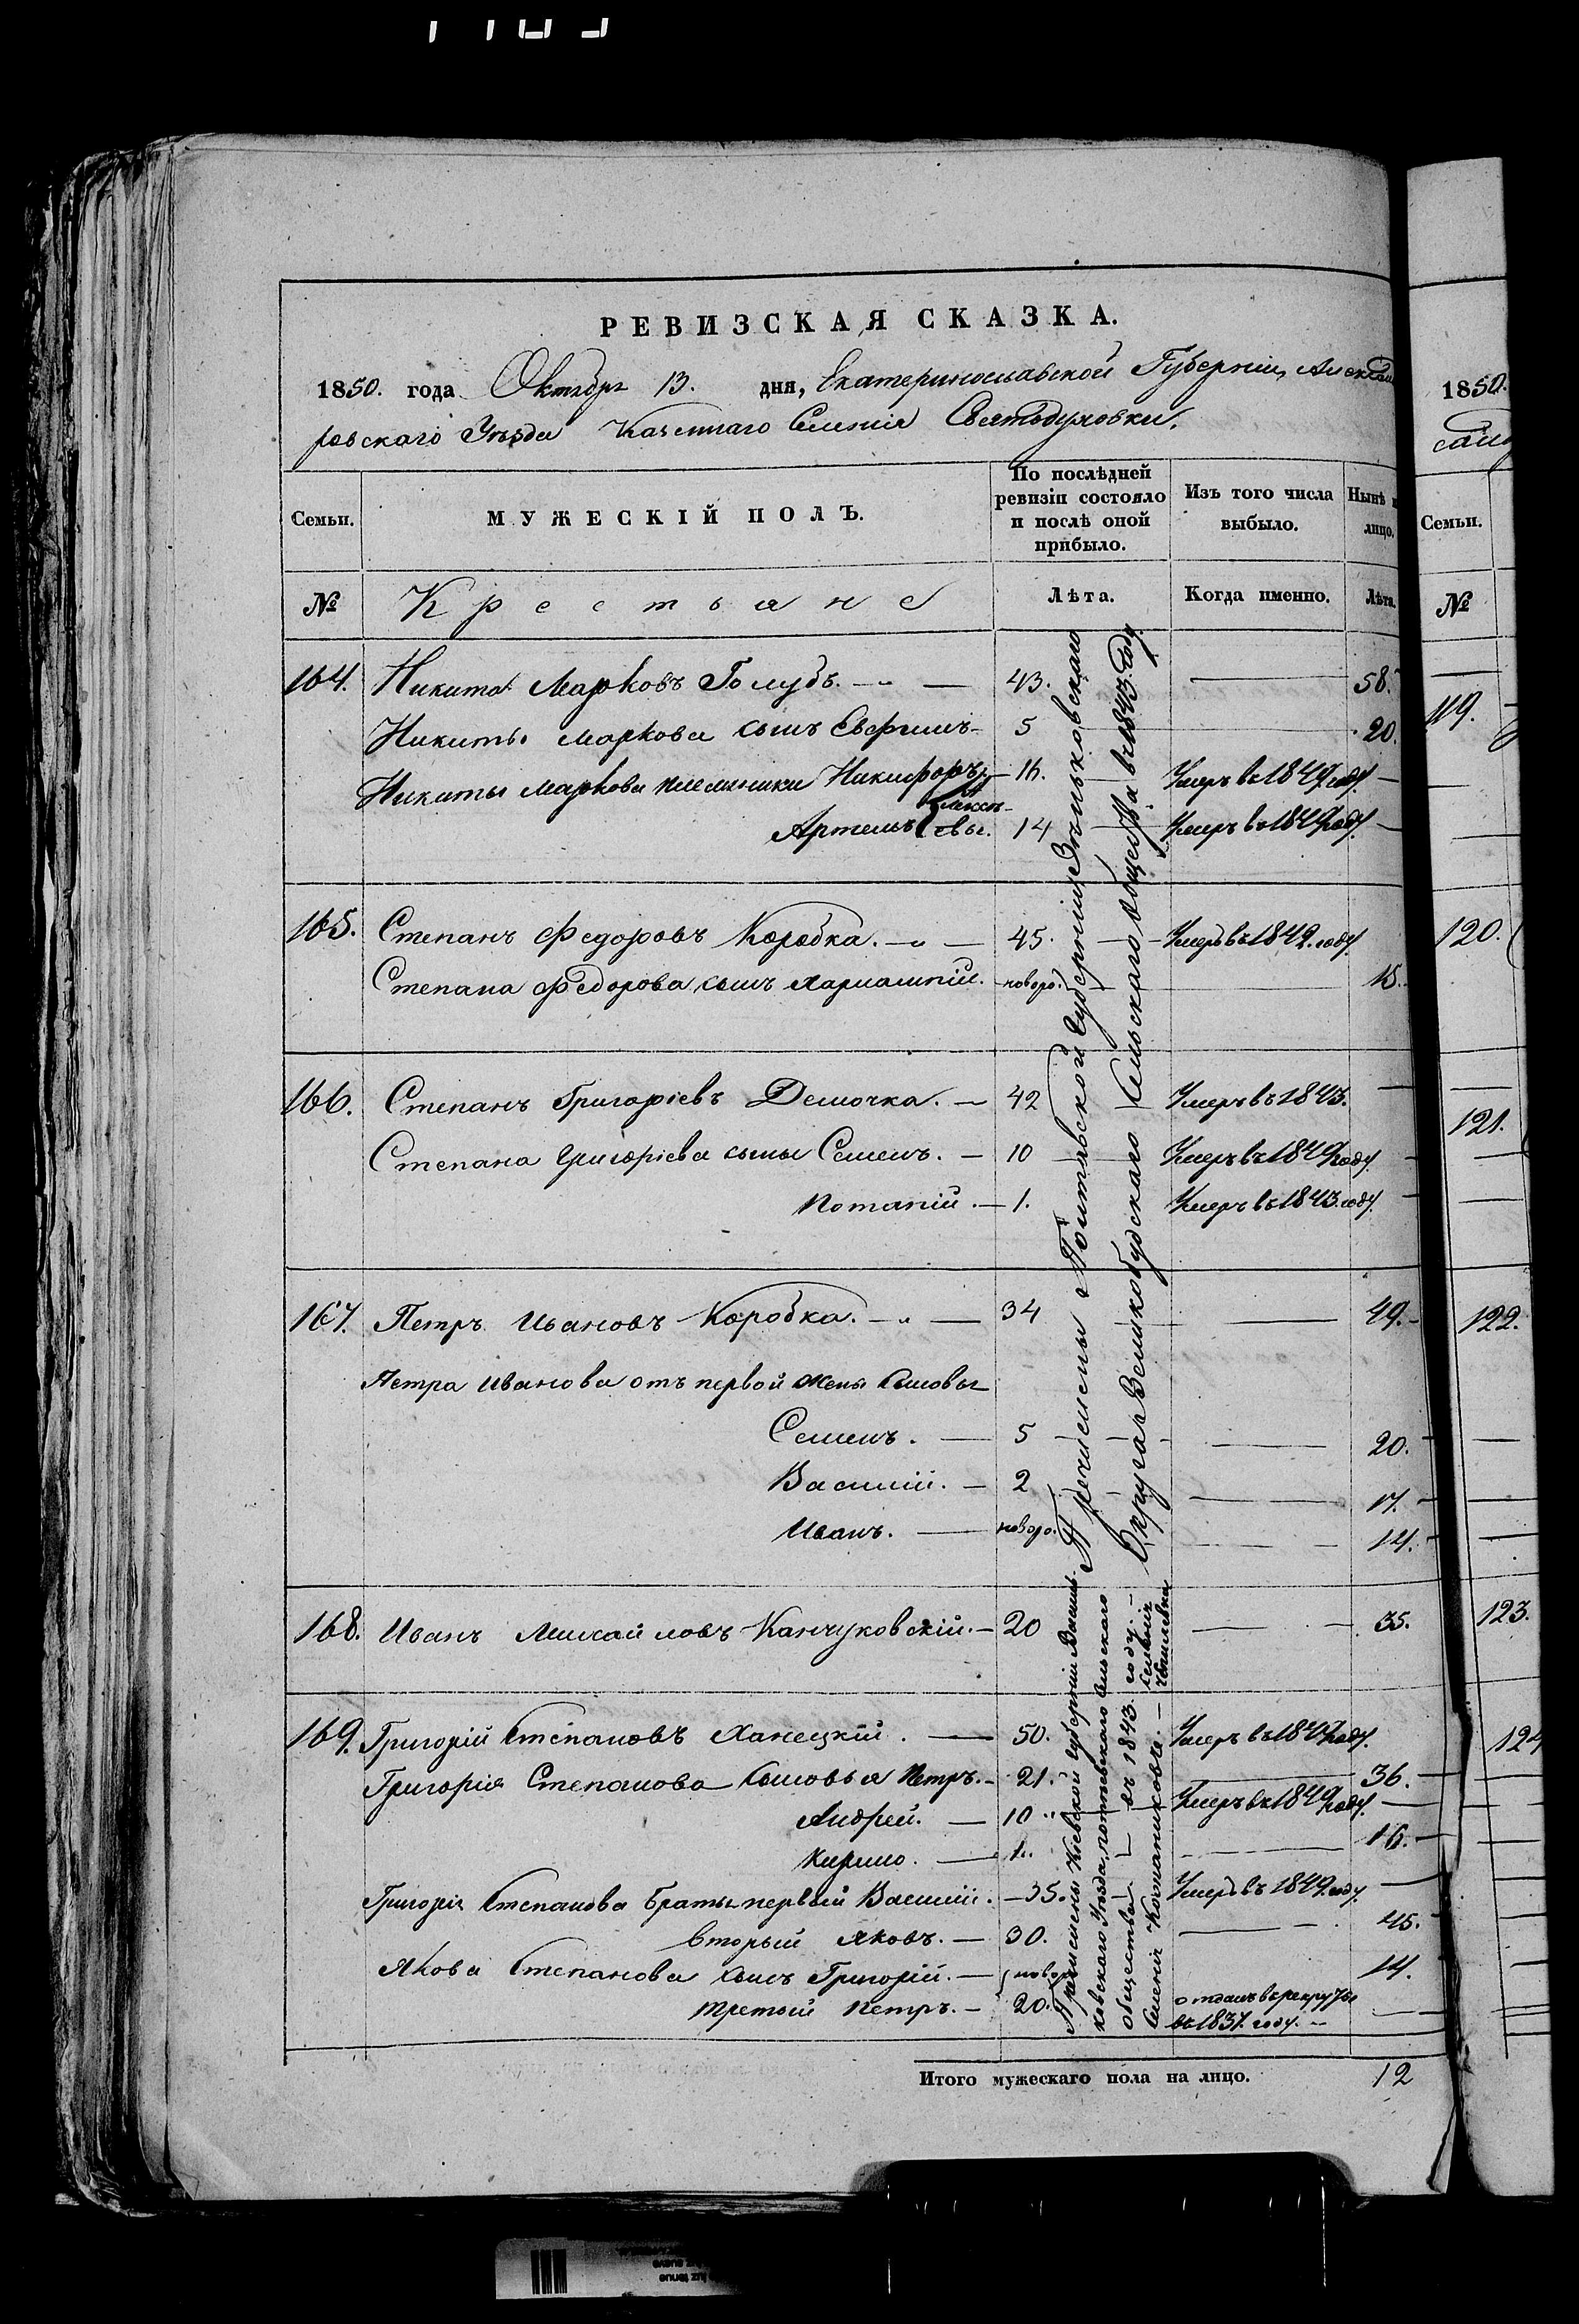 РЕВИЗСКАЯ СКАЗКА.
1850. года Октября 13. дня, Екатеринославской Губерніи, Александ
ровскаго Уѣзда Казеннаго Селенія Святодуховки.
Семьи.
МУЖЕСКІЙ ПОЛЪ.
По послѣдней ревизіи состояло и послѣ оной прибыло.
Изъ того числа выбыло.
Нынѣ
лицо.
№
Крестьяне
Лѣта.
Когда именно.
Лѣта.
164. Никита Марковъ Голубъ. — 43. — 58.
Никиты Маркова сынъ Евфимъ — 5 — 20.
Никиты Маркова племянники Никифоръ — 16. Умеръ въ 1849 году. —
Алексѣ-
Артемъ евы. 14 Умеръ въ 1849 году. —
165. Степанъ Федоровъ Коробка. — 45. — Умеръ въ 1849. году.
Степана Федорова сынъ Харлампій. новоро. — 15.
166. Степанъ Григоріевъ Демочка. — 42 Умеръ въ 1843. —
Степана Григоріева сыны Семенъ. — 10 — Умеръ въ 1849 году. —
Потапій. — 1. Умеръ въ 1843. году. —
167. Петръ Ивановъ Коробка. — 34 — 49.
Петра Иванова отъ первой жены сыновья
Семенъ. — 5 — 20.
Василій. — 2 — 17.
Иванъ. — новоро. — 14.
168. Иванъ Михайловъ Канчуковскій. — 20 — 35.
169. Григорій Степановъ Ханецкій. — 50. Умеръ въ 1849 году.
Григорія Степанова сыновья Петръ. — 21. — 36.
Андрей. — 10 Умеръ въ 1849 году. —
Кирило. — 1. — 16.
Григорія Степанова братья первый Василій. — 35. Умеръ въ 1849. году. —
вторый Яковъ. — 30. — 45.
Якова Степанова сынъ Григорій. — новор. 14.
третій Петръ. — 20. отданъ въ рекруты
въ 1837. году. —
Причислены Полтавской Губерніи Зѣньковскаго
Округа Великобудскаго Сельскаго общества въ 1843. году.
Причислены Кіевской губерніи Василь
ковскаго Уѣзда, сельскаго
общества — въ 1843. году. —
селенія
Итого мужескаго пола на лицо. 12
1850.
Семьи.
№
119.
120.
121.
122.
123.
124